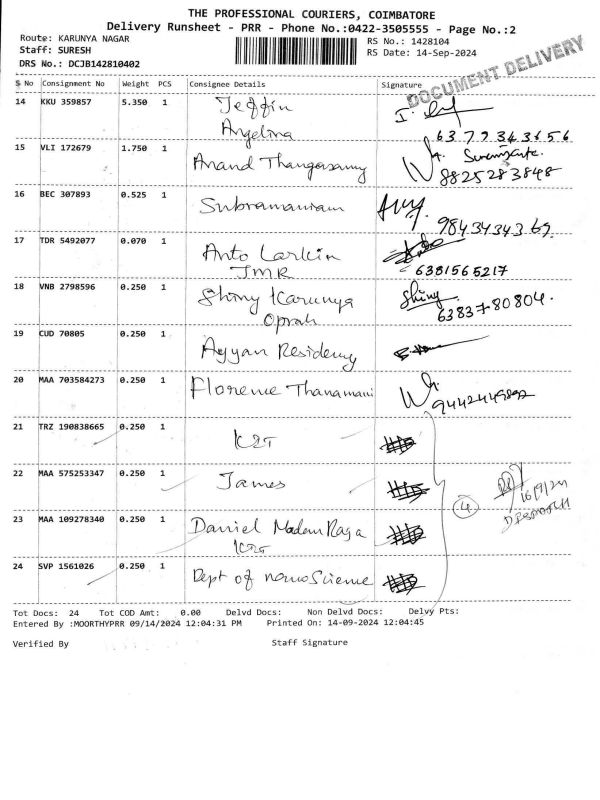 THE PROFESSIONAL COURIERS, COIMBATORE
Delivery Runsheet - PRR - Phone No.:0422-3505555 - Page No.:2
Route: KARUNYA NAGAR
RS No.: 1428104
Staff: SURESH
RS Date: 14-Sep-2024
DRS No.: DCJB142810402
DOCUMENT DELIVERY
S No Consignment No Weight PCS Consignee Details Signature
14 KKU 359857 5.350 1 Jeffin
Angelina
15 VLI 172679 1.750 1 Anand Thangasamy
8825283848
16 BEC 307893 0.525 1 Subramaniam
17 TDR 5492077 0.070 1 Anto Larkin
JMR 6381565217
18 VNB 2798596 0.250 1 Shiny Karunya Shiny
Oprah 6383780804.
19 CUD 70805 0.250 1 Ayyan Residency
20 MAA 703584273 0.250 1 Florence Thanamani
21 TRZ 190838665 0.250 1
22 MAA 575253347 0.250 1 James
4
23 MAA 109278340 0.250 1 Daniel Madan Raja
24 SVP 1561026 0.250 1 Dept of nanoScience
Tot Docs: 24 Tot COD Amt: 0.00 Delvd Docs: Non Delvd Docs: Delvy Pts:
Entered By :MOORTHYPRR 09/14/2024 12:04:31 PM Printed On: 14-09-2024 12:04:45
Verified By Staff Signature